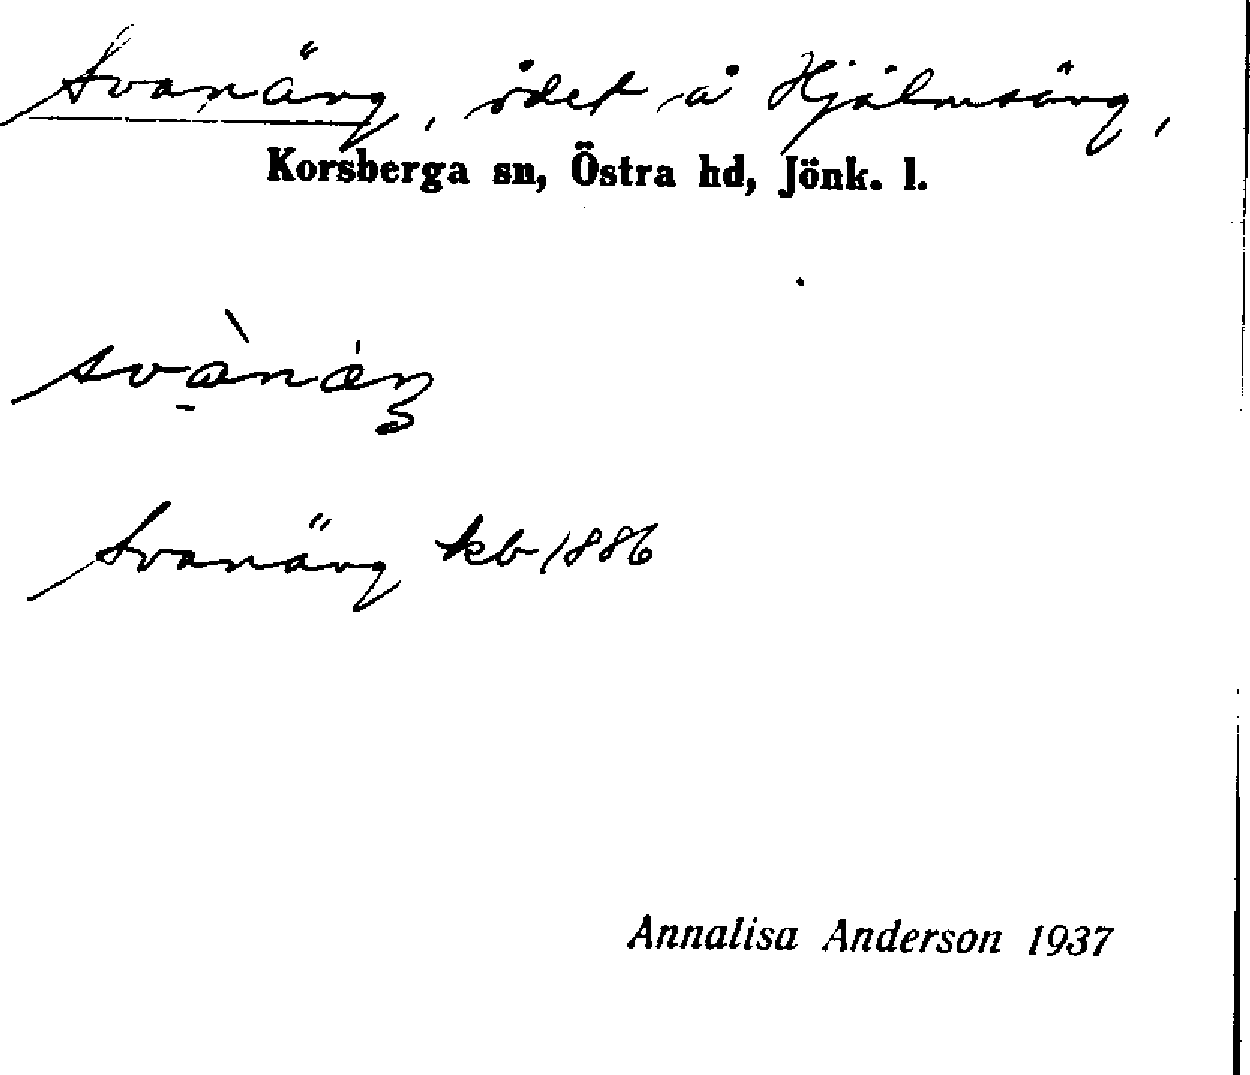 Svanäng, ödet å Hjälmsäng,
Korsberga sn, Östra hd, Jönk. l.
Svanäng kb 1886
Annalisa Anderson 1937